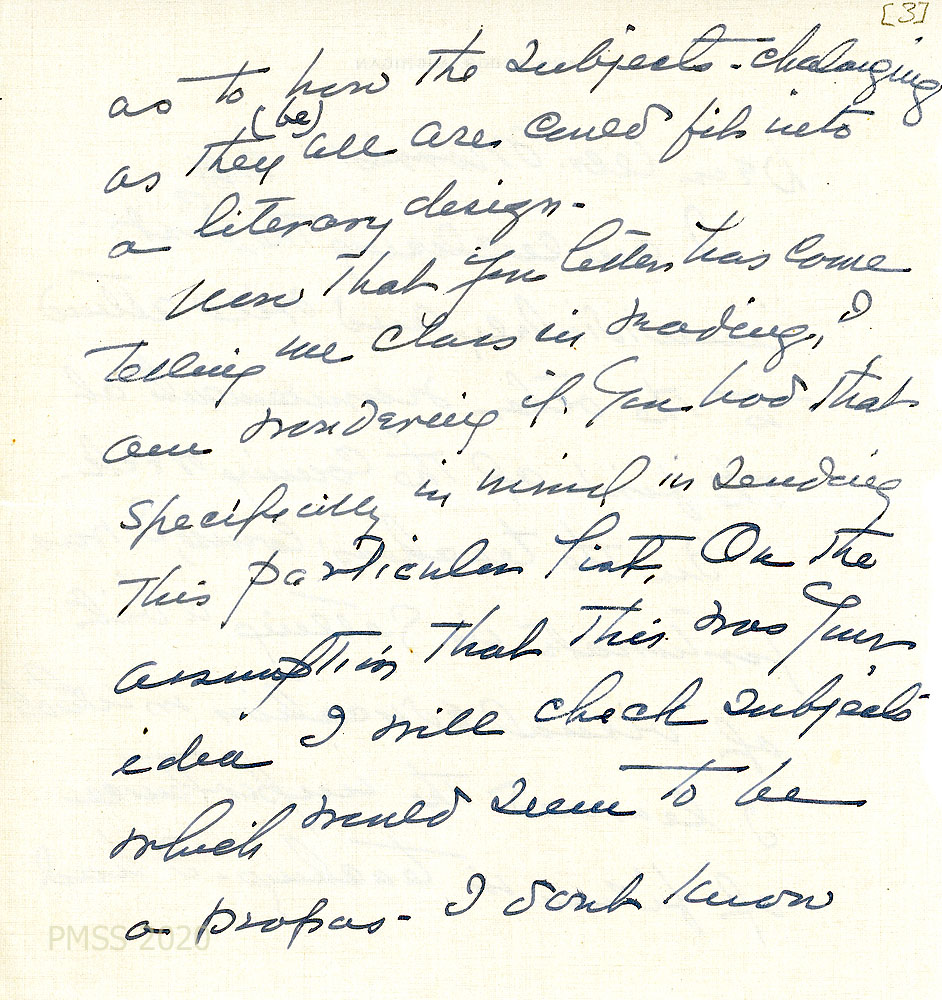 [3]
as to how the subjects - chalanging
(be)
as they all are could fit into
a literary design -
Now that your letter has come
telling me class in reading, I
am wondering if you had that
specifically in mind in sending
this particular list. On the
assumption that this was your
idea I will check subjects
which would seem to be
a propos - I don't know
PMSS 2020